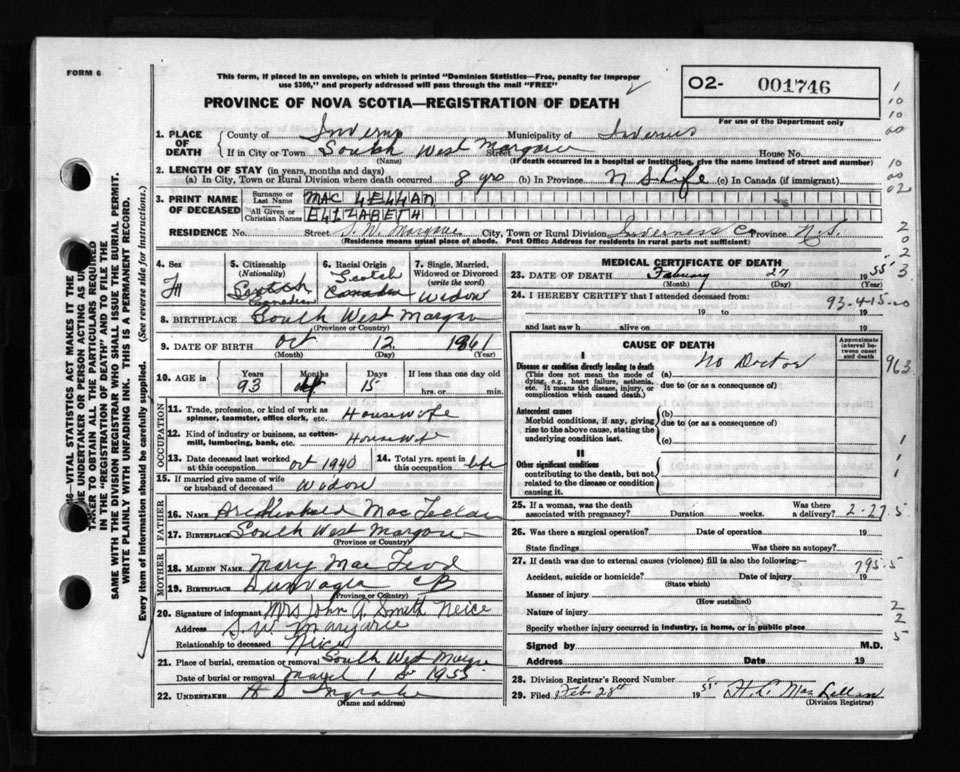 FORM 6
This form, if placed in an envelope, on which is printed "Dominion Statistics—Free, penalty for improper
use $300," and properly addressed will pass through the mail "FREE"
02- 001746
For use of the Department only
PROVINCE OF NOVA SCOTIA—REGISTRATION OF DEATH
1. PLACE OF DEATH
County of Municipality of
If in City or Town South West Margaree Street House No.
(Name) (If death occurred in a hospital or institution, give the name instead of street and number)
2. LENGTH OF STAY (in years, months and days)
(a) In City, Town or Rural Division where death occurred 8 yrs (b) In Province N S Life (c) In Canada (if immigrant)
3. PRINT NAME OF DECEASED
Surname or Last Name MAC LELLAN
All Given or Christian Names ELIZABETH
RESIDENCE No. Street S. W. Margaree City, Town or Rural Division Inverness Co Province N.S.
(Residence means usual place of abode. Post Office Address for residents in rural parts not sufficient)
4. Sex
5. Citizenship (Nationality) Scotch Canadian
6. Racial Origin Scotch Canadian
7. Single, Married, Widowed or Divorced (write the word) Widow
8. BIRTHPLACE South West Margaree
(Province or Country)
9. DATE OF BIRTH Oct 12 1861
(Month) (Day) (Year)
10. AGE in Years 93 Months Days 15 If less than one day old
hrs. or min.
OCCUPATION
11. Trade, profession, or kind of work as spinner, teamster, office clerk, etc. Housewife
12. Kind of industry or business, as cotton-mill, lumbering, bank, etc.
13. Date deceased last worked at this occupation Oct 1940
14. Total yrs. spent in this occupation life
15. If married give name of wife or husband of deceased Widow
FATHER
16. NAME
17. BIRTHPLACE South West Margaree
(Province or Country)
MOTHER
18. MAIDEN NAME Mary Mac
19. BIRTHPLACE CB
(Province or Country)
20. Signature of informant Mrs John A. Smith Neice
Address S. W. Margarie
Relationship to deceased Neice
21. Place of burial, cremation or removal South West
Date of burial or removal 1 1955
22. UNDERTAKER
(Name and address)
MEDICAL CERTIFICATE OF DEATH
23. DATE OF DEATH 27 1955
(Month) (Day) (Year)
24. I HEREBY CERTIFY that I attended deceased from:
19 to 19
and last saw h alive on 19
CAUSE OF DEATH
Approximate interval between onset and death
I
Disease or condition directly leading to death (a) No Doctor
(This does not mean the mode of dying, e.g., heart failure, asthenia, etc. It means the disease, injury, or complication which caused death.)
due to (or as a consequence of)
Antecedent causes (b)
Morbid conditions, if any, giving rise to the above cause, stating the underlying condition last.
due to (or as a consequence of)
(c)
II
Other significant conditions contributing to the death, but not related to the disease or condition causing it.
25. If a woman, was the death associated with pregnancy? Duration weeks. Was there a delivery?
26. Was there a surgical operation? Date of operation 19
State findings Was there an autopsy?
27. If death was due to external causes (violence) fill in also the following:—
Accident, suicide or homicide? Date of injury 19
(State which)
Manner of injury
(How sustained)
Nature of injury
Specify whether injury occurred in industry, in home, or in public place
Signed by M.D.
Address Date 19
28. Division Registrar's Record Number
29. Filed Feb 28th 1955 Mac Lellan
(Division Registrar)
93-415-00
963
2-27-5
795-5
SAME WITH THE DIVISION REGISTRAR WHO SHALL ISSUE THE BURIAL PERMIT.
WRITE PLAINLY WITH UNFADING INK. THIS IS A PERMANENT RECORD.
Every item of information should be carefully supplied. (See reverse side for instructions.)